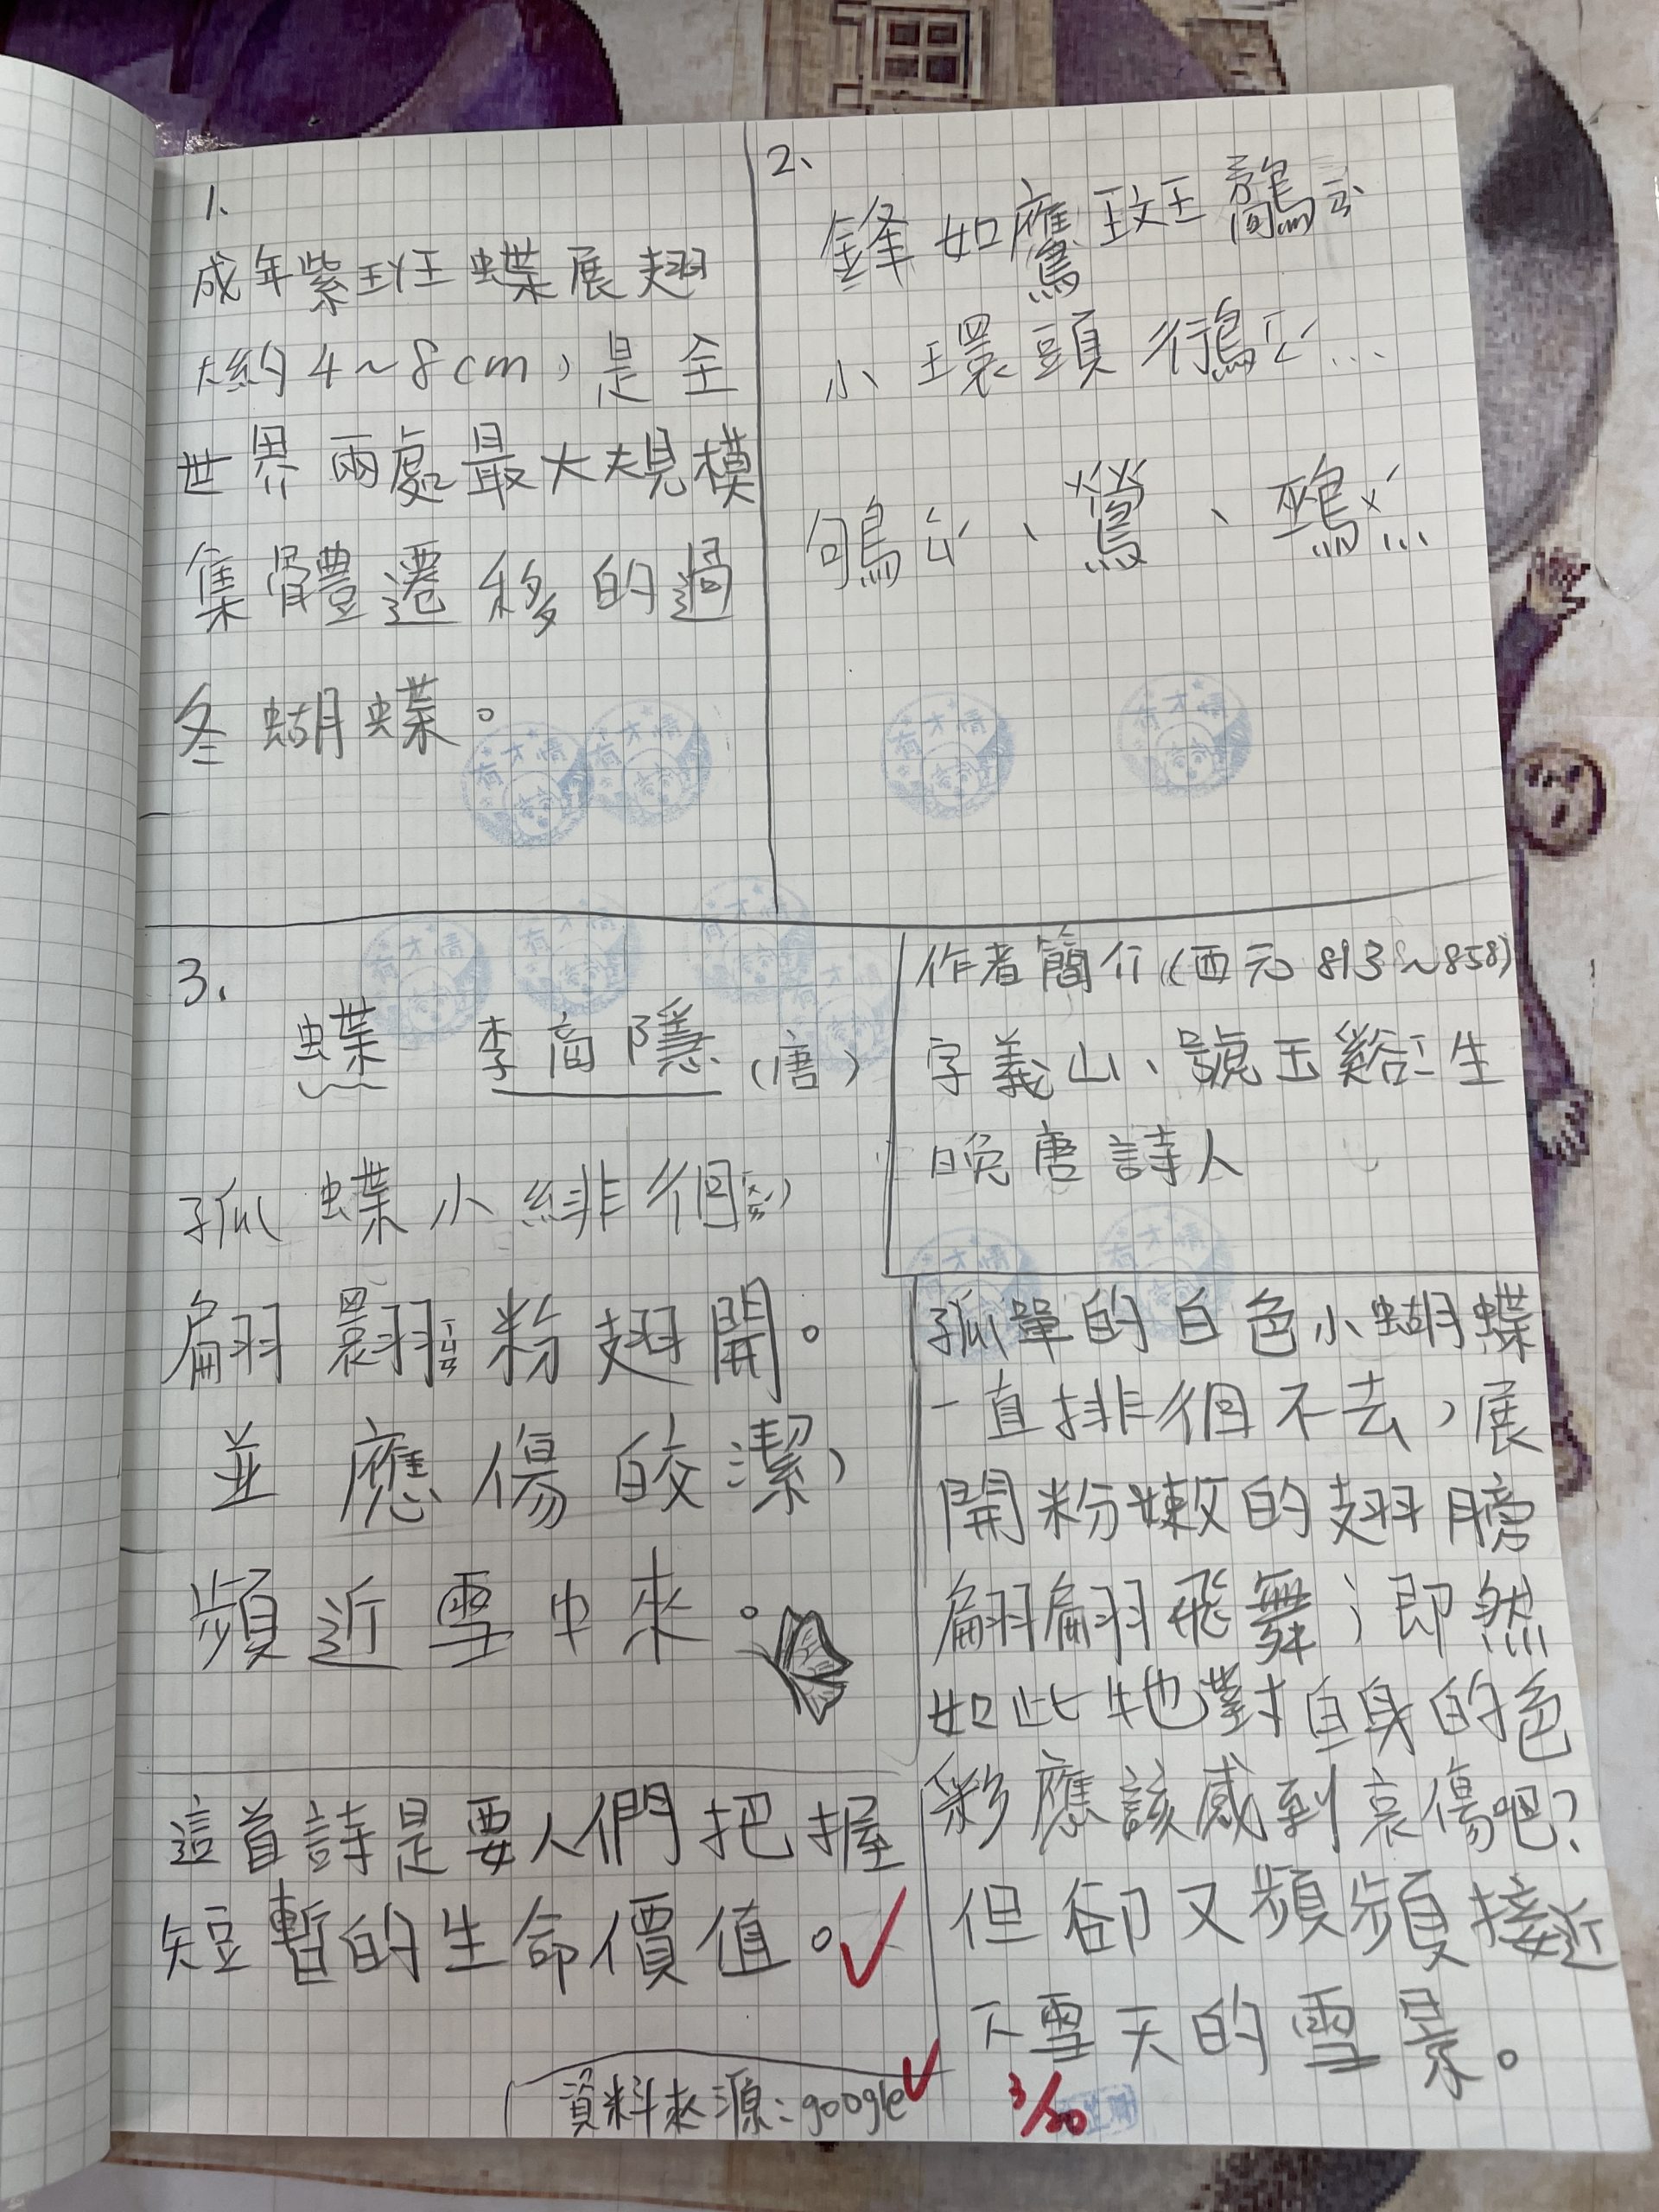 1、
成年紫斑蝶展翅
大約4~8cm,是全
世界兩處最大規模
集體遷移的過
冬蝴蝶。
2、
鋒如鷹斑鷸ㄩˋ
小環頭行鳥ㄏㄥˊ...
鴝ㄑㄩˊ、鶯、鵐ㄨˊ...
3、
蝶 李商隱(唐)
孤蝶小緋徊
翩翾ㄒㄩㄢ粉翅開。
並應傷皎潔,
頻近雪中來。
作者簡介(西元813~858)
字義山、號玉谿ㄒㄧ生
晚唐詩人
孤單的白色小蝴蝶
一直排徊不去,展
開粉嫩的翅膀
翩翩飛舞;即然
如此牠對自身的色
彩應該感到哀傷吧?
但卻又頻頻接近
下雪天的雪景。
這首詩是要人們把握
短暫的生命價值。
資料來源:google
3/20